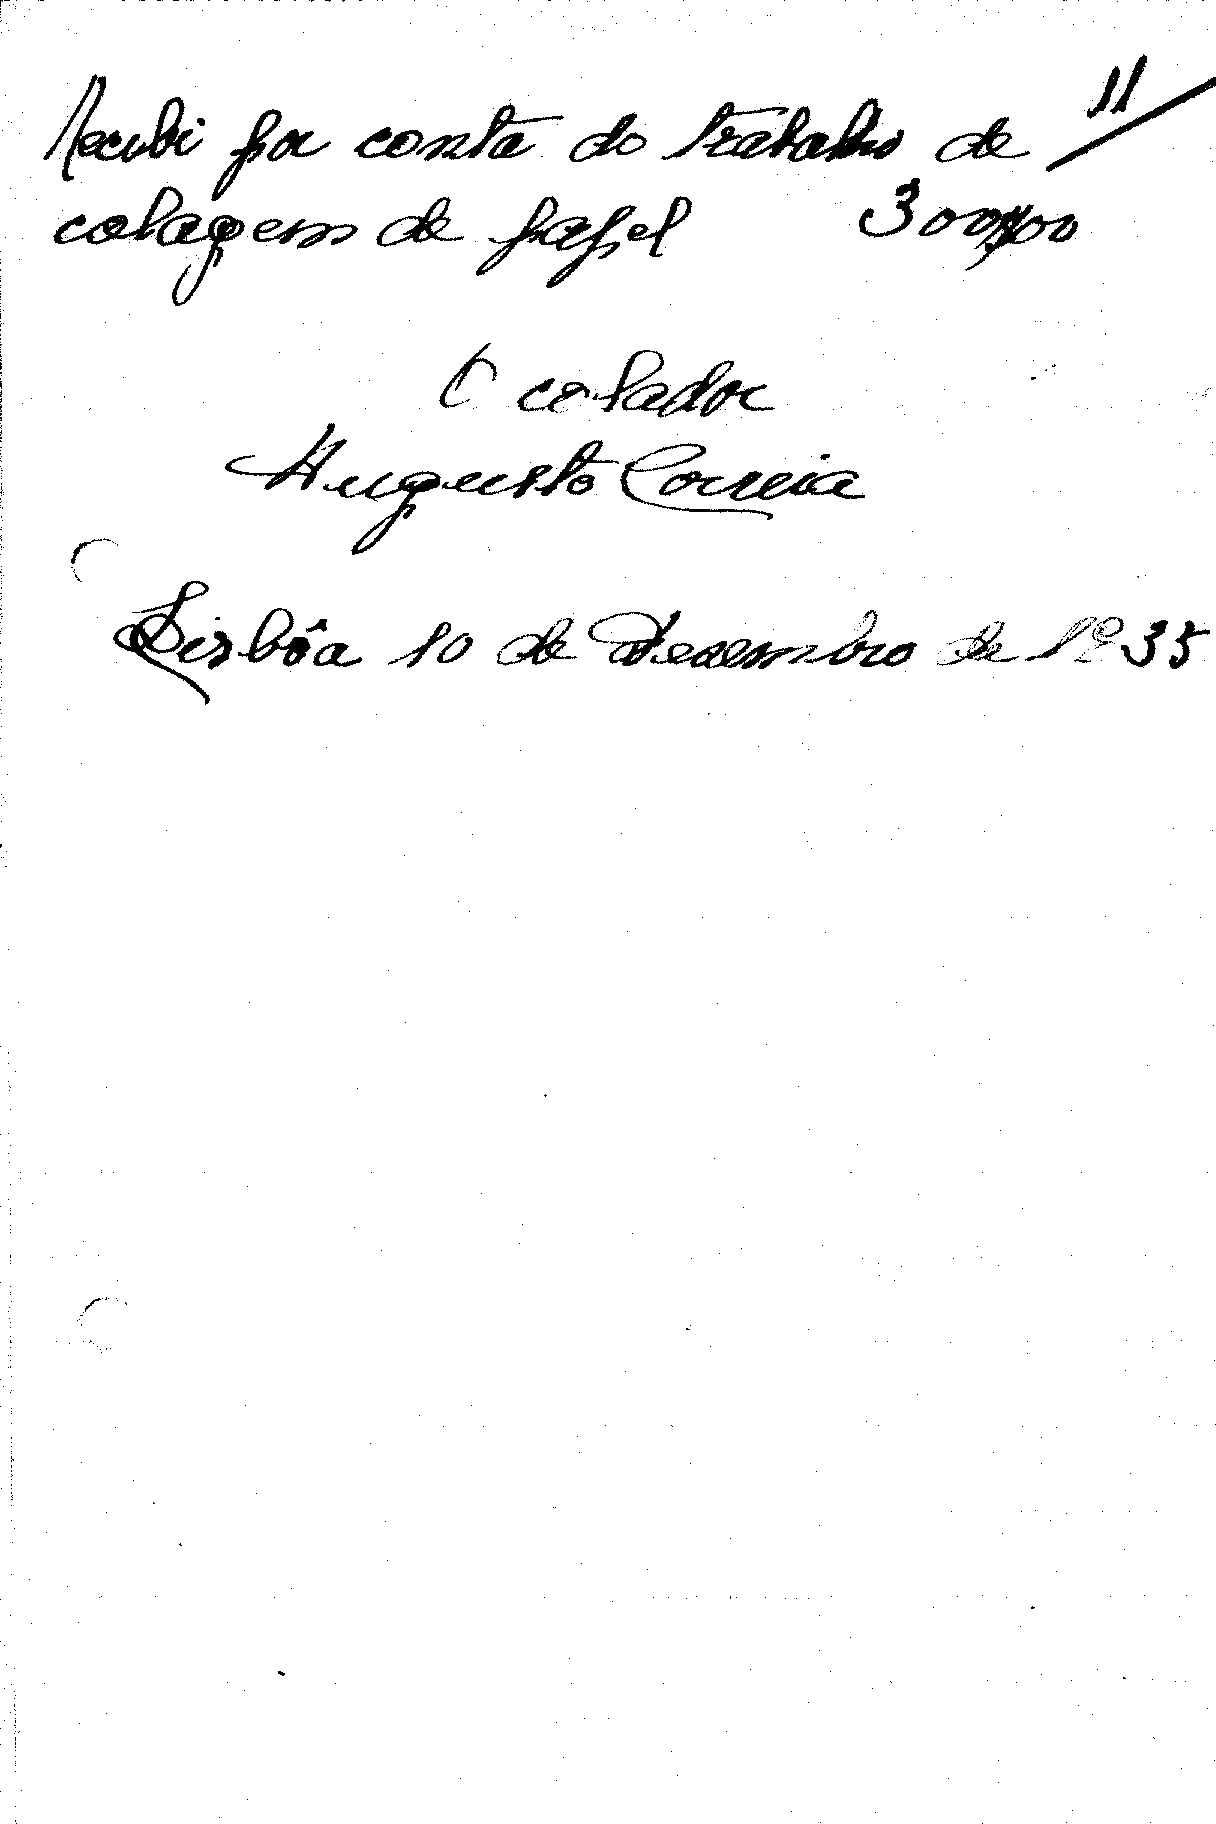 11
Recebi por conta do trabalho de
colagem de papel 300$00
O colador
Augusto Correia
Lisbôa 10 de Dezembro de 1935